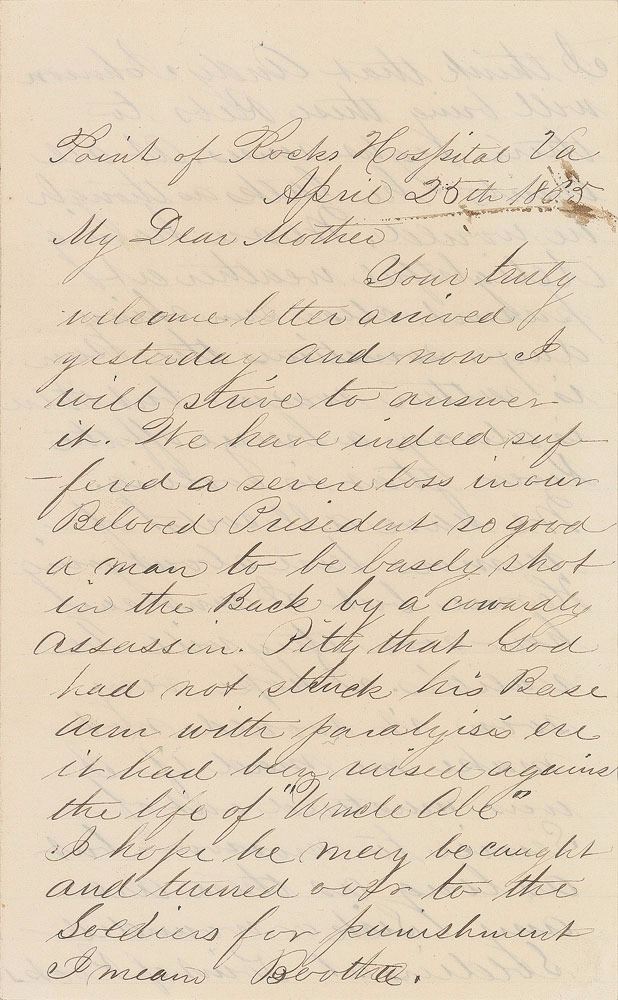 Point of Rocks Hospital Va
April 25th 1865
My Dear Mother
Your truly
welcome letter arrived
yesterday and now I
will strive to answer
it. We have indeed suf-
-fered a severe loss in our
Beloved President so good
a man to be basely shot
in the Back by a cowardly
assassin. Pitty that God
had not struck his Base
arm with paralysis ere
it had been raised against
the life of "Uncle Abe"
I hope he may be caught
and turned over to the
Soldiers for punishment
I mean Boothe.